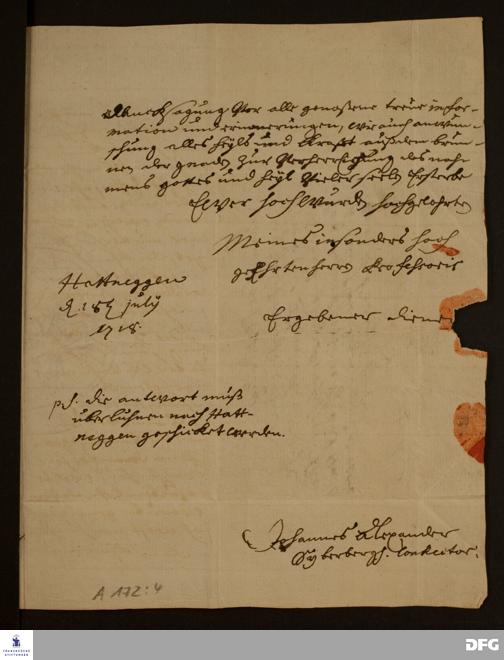 abnecksagung Vor alle genoßene treue infor-
mation und ermunerungen, wir auch anwün-
schung alles heyls und kraft auß dem brun-
nen der gnaden zur Verherrlichung des nah-
mens gottes und heyl Vieler seelen Ersterbe
Ewer Hochwürden Hochgelahrten
Meines insonders hoch
geEhrten herrn Professoris
Hattneggen
d. 18t july
1718.
Ergebener diener
ps. die antwort muß
über luhnen nach Hatt-
neggen geschicket werden.
Johannes Alexander
Syberbergh. Conrector.
A 172:4
FRANCKESCHE
STIFTUNGEN
DFG